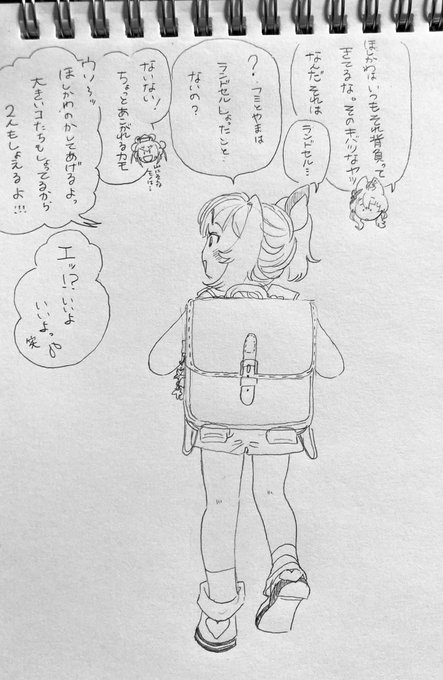 ほしかわはいつもそれ背負って
きてるな。そのキバツなヤツ
なんだ それは
ランドセル…
? フミとやまは
ランドセルしょったこと
ないの?
ないない!
ちょっとあこがれるカモ
ウソぉッ
ほしかわのかしてあげるよっ
大きいコたちもしょってるから
2人もしょえるよ!!!
エッ!?いいよ
いいよっ
笑